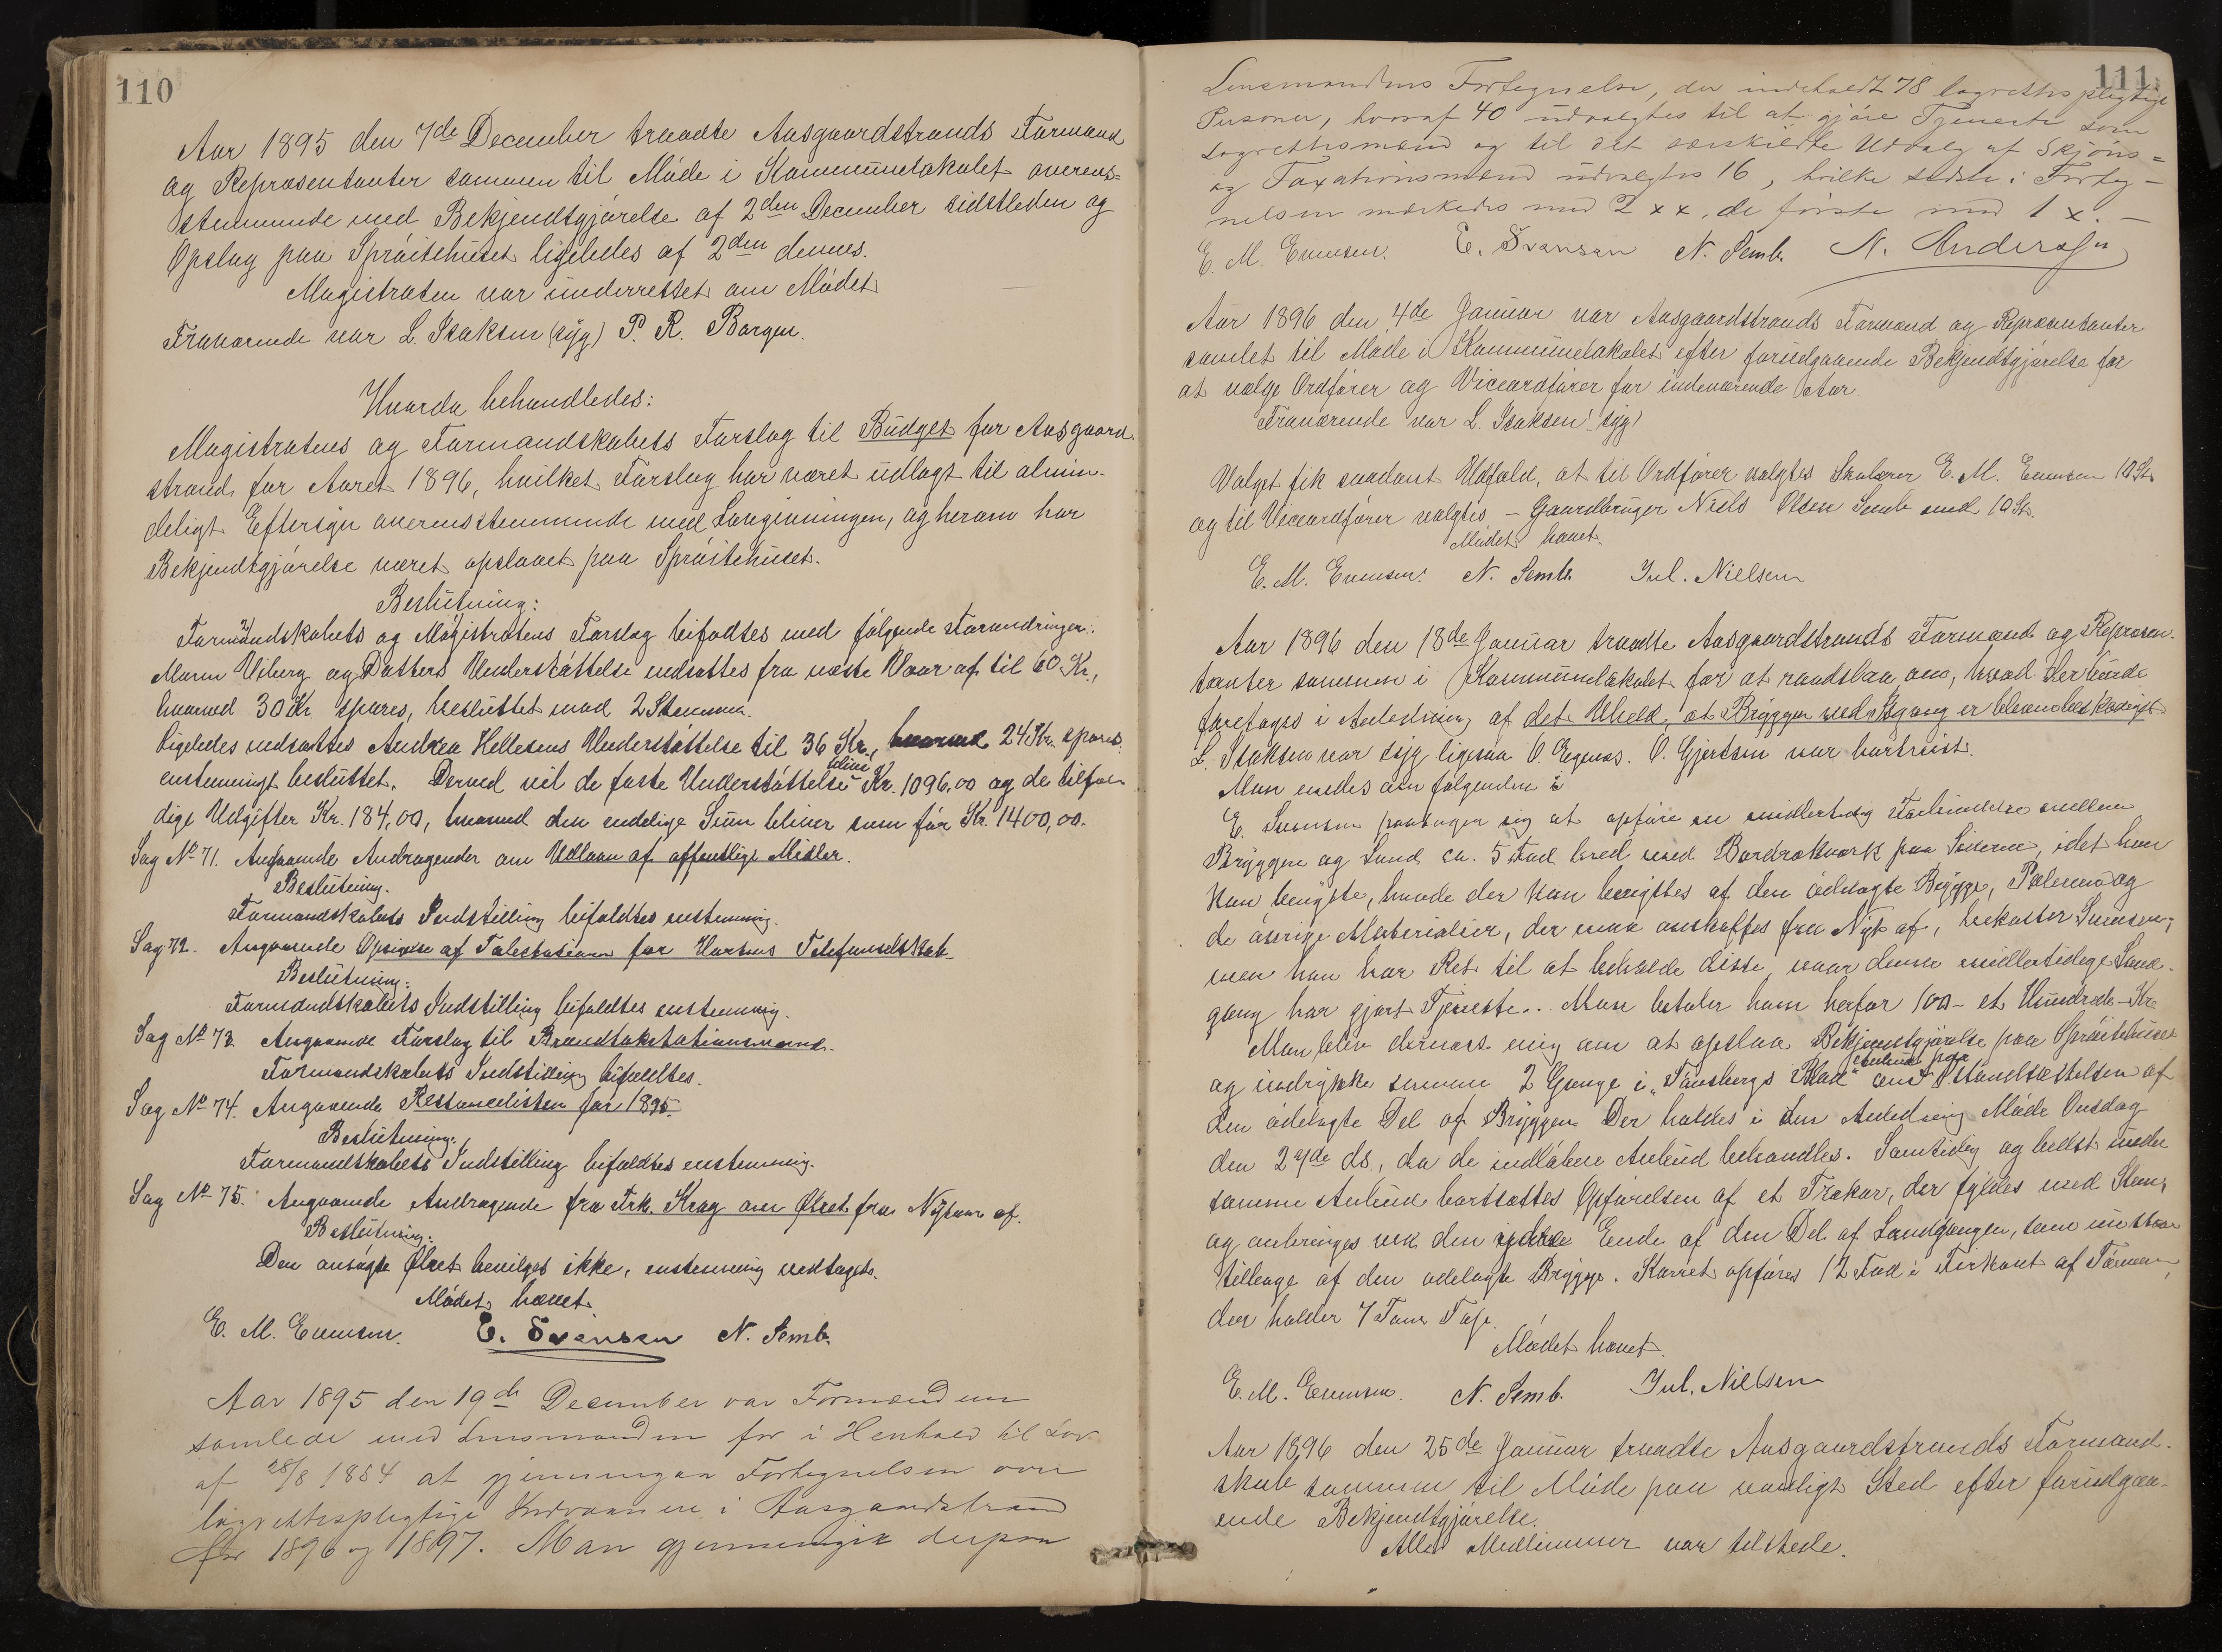 110
Aar 1895 den 7de December traadte Aasgaardstrands Formænd
og Repræsentanter sammen til Møde i Kommunelokalet overens=
stemmende med Bekjendtgjørelse af 2den December sidstleden og
Opslag paa Sprøitehuset ligeledes af 2den dennes.
Magistraten var underrettet om Mødet
Fraværende var L. Isaksen (syg) P. R. Borgen.
Hvorda behandledes:
Magistratens og Formandskabets Forslag til Budget for Aasgaard
strand for Aaret 1896, hvilket Forslag har været udlagt til almin-
deligt Eftersyn overensstemmende med Lovgivningen, og herom har
Bekjendtgjørelse været opslaaet paa Sprøitehuset.
Beslutning:
Formandskabets og Magistratens Forslag bifaldtes med følgende Forandringer:
Maren Viberg og Datters Understøttelse nedsattes fra næste Aar af til 60 Kr.,
hvorved 30 Kr. spares, besluttet mod 2 Stemmer.
Ligeledes nedsattes Andrea Hellesens Understøttelse til 36 Kr., hvorved 24 Kr. spares
enstemmigt besluttet. Derved vil de faste Understøttelse blive Kr. 1096,00 og de tilfæl-
dige Udgifter Kr. 184,00, hvorved den endelige Sum bliver som før Kr. 1400,00.
Sag No 71. Angaaende Andragender om Udlaan af offentlige Midler.
Beslutning.
Formandskabets Indstilling bifaldtes enstemmig.
Sag 72. Angaaende Opsigelse af Talestation for Hortens Telefonselskab
Beslutning:
Formandskabets Indstilling bifaldtes enstemmig.
Sag No 73. Angaaende Forslag til Brandtakstationsmænd.
Formandskabets Indstilling bifaldtes.
Sag No 74. Angaaende Restancelisten for 1895.
Beslutning.
Formandskabets Indstilling bifaldtes enstemmig.
Sag No 75. Angaaende Andragende fra Frk. Krag om Ølret fra Nytaar af.
Beslutning:
Den ansøgte Ølret bevilges ikke, enstemmig vedtaget.
Mødet hævet.
E. M. Evensen. E. Svensen N. Semb.
Aar 1895 den 19de December var Formændene
samlede med Lensmanden for i Henhold til Lov
af 28/8 1854 at gjennemgaa Fortegnelsen over
lagrettespligtige Indvaanere i Aasgaardstrand
for 1896 og 1897. Man gjennemgik derpaa
111
Lensmandens Fortegnelse, der indeholdt 78 lagrettespligtige
Personer, hvoraf 40 udvalgtes til at gjøre Tjeneste som
Lagrettesmænd og til det særskildte Udvalg af Skjøns=
og Taxationsmænd udvalgtes 16, hvilke sidste i Forteg-
nelsen mærkedes med 2 xx, de første med 1 x. –
E. M. Evensen. E. Svensen N. Semb. N. Andersen
Aar 1896 den 4de Januar var Aasgaardstrands Formænd og Repræsentanter
samlet til Møde i Kommunelokalet efter forudgaaende Bekjendtgjørelse for
at vælge Ordfører og Viceordfører for indeværende Aar
Fraværende var L. Isaksen (syg)
Valget fik saadant Udfald, at til Ordfører valgtes E. M. Evensen 10 St.
og til Viceordfører valgtes – Gaardbruger Niels Olsen Semb med 10 St.
Mødet hævet.
E. M. Evensen. N. Semb. Jul. Nielsen
Aar 1896 den 18de Januar traadte Aasgaardstrands Formænd og Repræsen-
tanter sammen i Kommunelokalet for at raadslaa om, hvad der burde
foretages i Anledning af det Uheld, at Bryggen ved Isgang er bleven beskadiget
L. Isaksen var syg ligesaa O. Egenæs. O. Gjertsen var bortreist.
Man enedes om følgende:
E. Svensen paatager sig at opføre en midlertidig Forbindelse mellem
Bryggen og Land ca. 5 Fod bred med Bordrækværk paa Siderne, idet han
kan benytte, hvad der kan benyttes af den ødelagte Brygge, Pælene og
de øvrige Materialier, der maa anskaffes fra Nyt af, bekoster Svensen,
men han har Ret til at beholde disse, naar denne midlertidige Land-
gang har gjort Tjeneste. Man betaler ham herfor 100 – et Hundrede – Kr.
Man blev dernæst enig om at opslaa Bekjendtgjørelse paa Sprøitehuset
og indrykke samme 2 Gange i "Tønsbergs Blad" om Anbud paa Istandsættelsen af
den ødelagte Del af Bryggen. Der holdes i den Anledning Møde Onsdag
den 29de ds., da de indløbne Anbud behandles. Samtidig og helst under
samme Anbud bortsættes Opførelsen af et Trækar, der fyldes med Sten,
og anbringes ved den ydre Ende af den Del af Landgangen, som nu staar
tilbage af den ødelagte Brygge. Karret opføres 12 Fod i Firkant af Tømmer,
der holder 7 Tom. Top.
Mødet hævet.
E. M. Evensen. N. Semb. Jul. Nielsen
Aar 1896 den 25de Januar traadte Aasgaardstrands Formand-
skab sammen til Møde paa vanligt Sted efter forudgaa-
ende Bekjendtgjørelse.
Alle Medlemmer var tilstede.